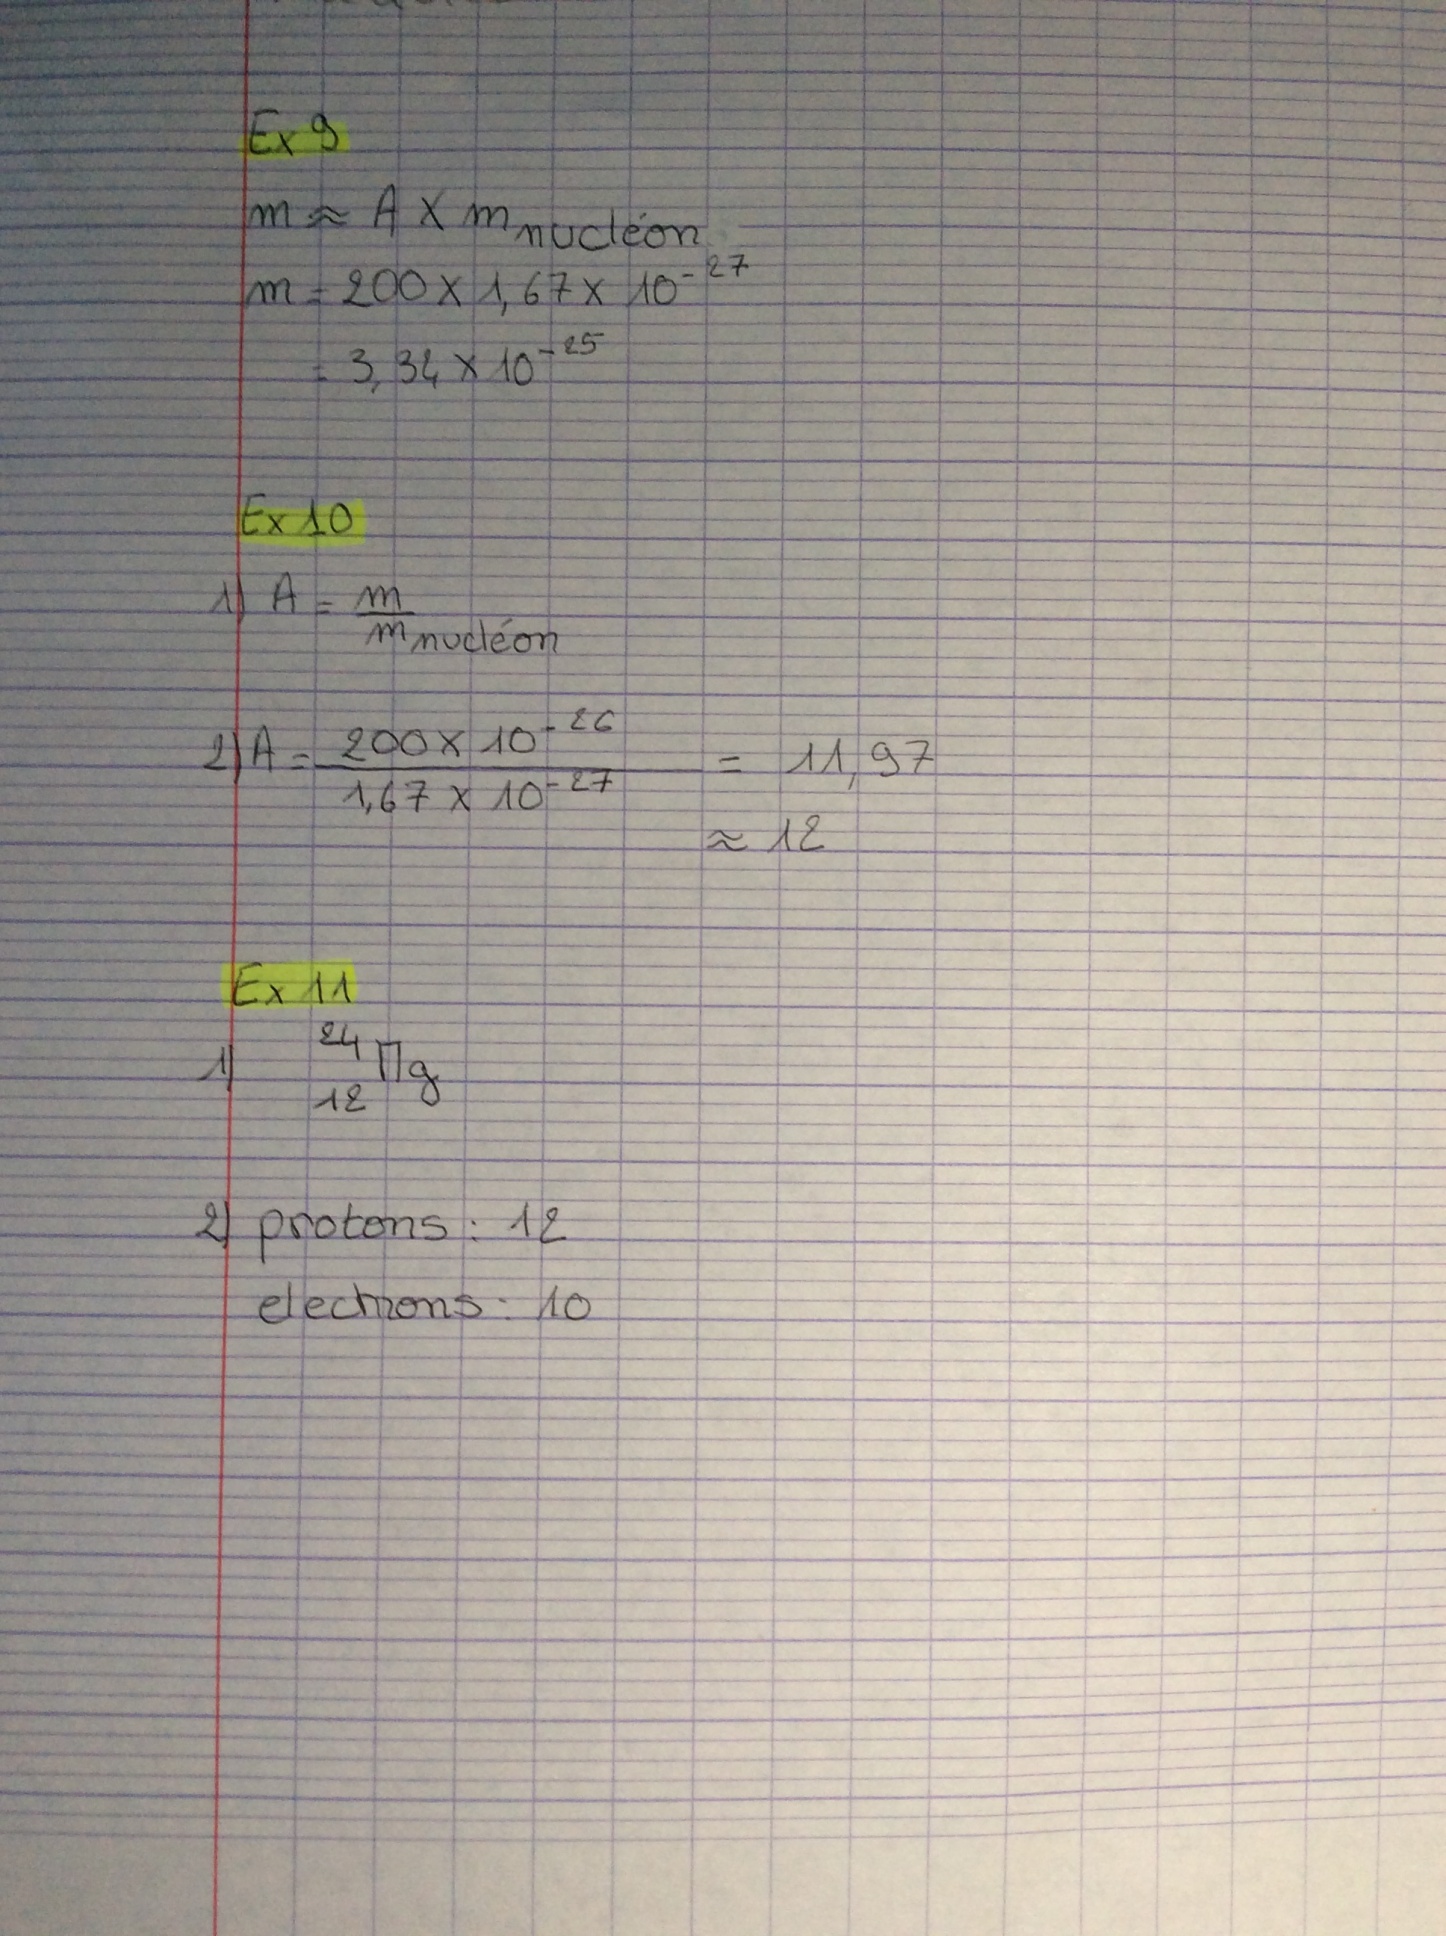 Ex 9
m ≈ A × m nucléon
m = 200 × 1,67 × 10⁻²⁷
= 3,34 × 10⁻²⁵
Ex 10
1) A = m / m nucléon
2) A = 200 × 10⁻²⁶ / 1,67 × 10⁻²⁷ = 11,97
≈ 12
Ex 11
1) ²⁴₁₂Mg
2) protons : 12
electrons : 10